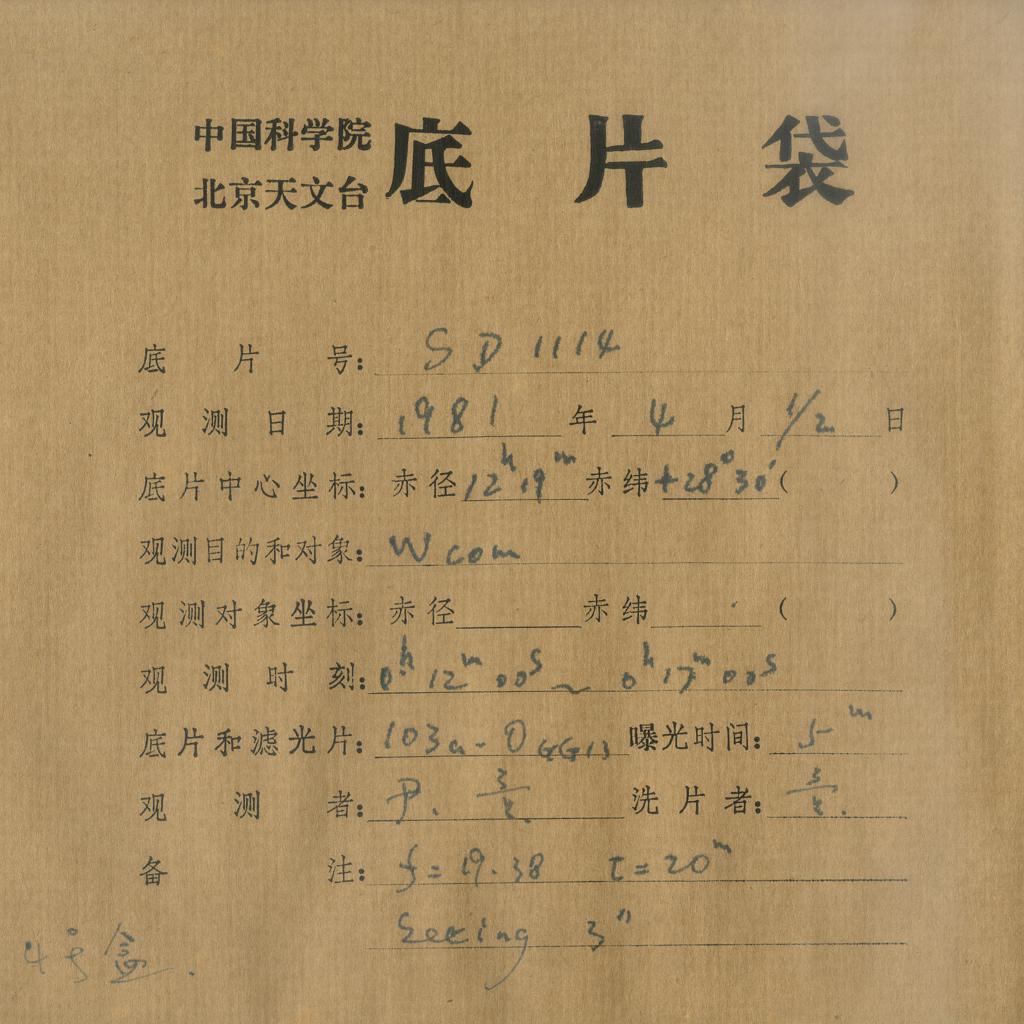 中国科学院
北京天文台 底片袋
底片号: SD 1114
观测日期: 1981 年 4 月 1/2 日
底片中心坐标: 赤径 12h 19m 赤纬 +28° 30′ ( )
观测目的和对象: W com
观测对象坐标: 赤径 赤纬 ( )
观测时刻: 0h 12m 00s ~ 0h 17m 00s
底片和滤光片: 103a-O GG13 曝光时间: 5m
观测者: 尹. 洗片者:
备注: f=19.38 t=20m
Seeing 3"
4号盒.